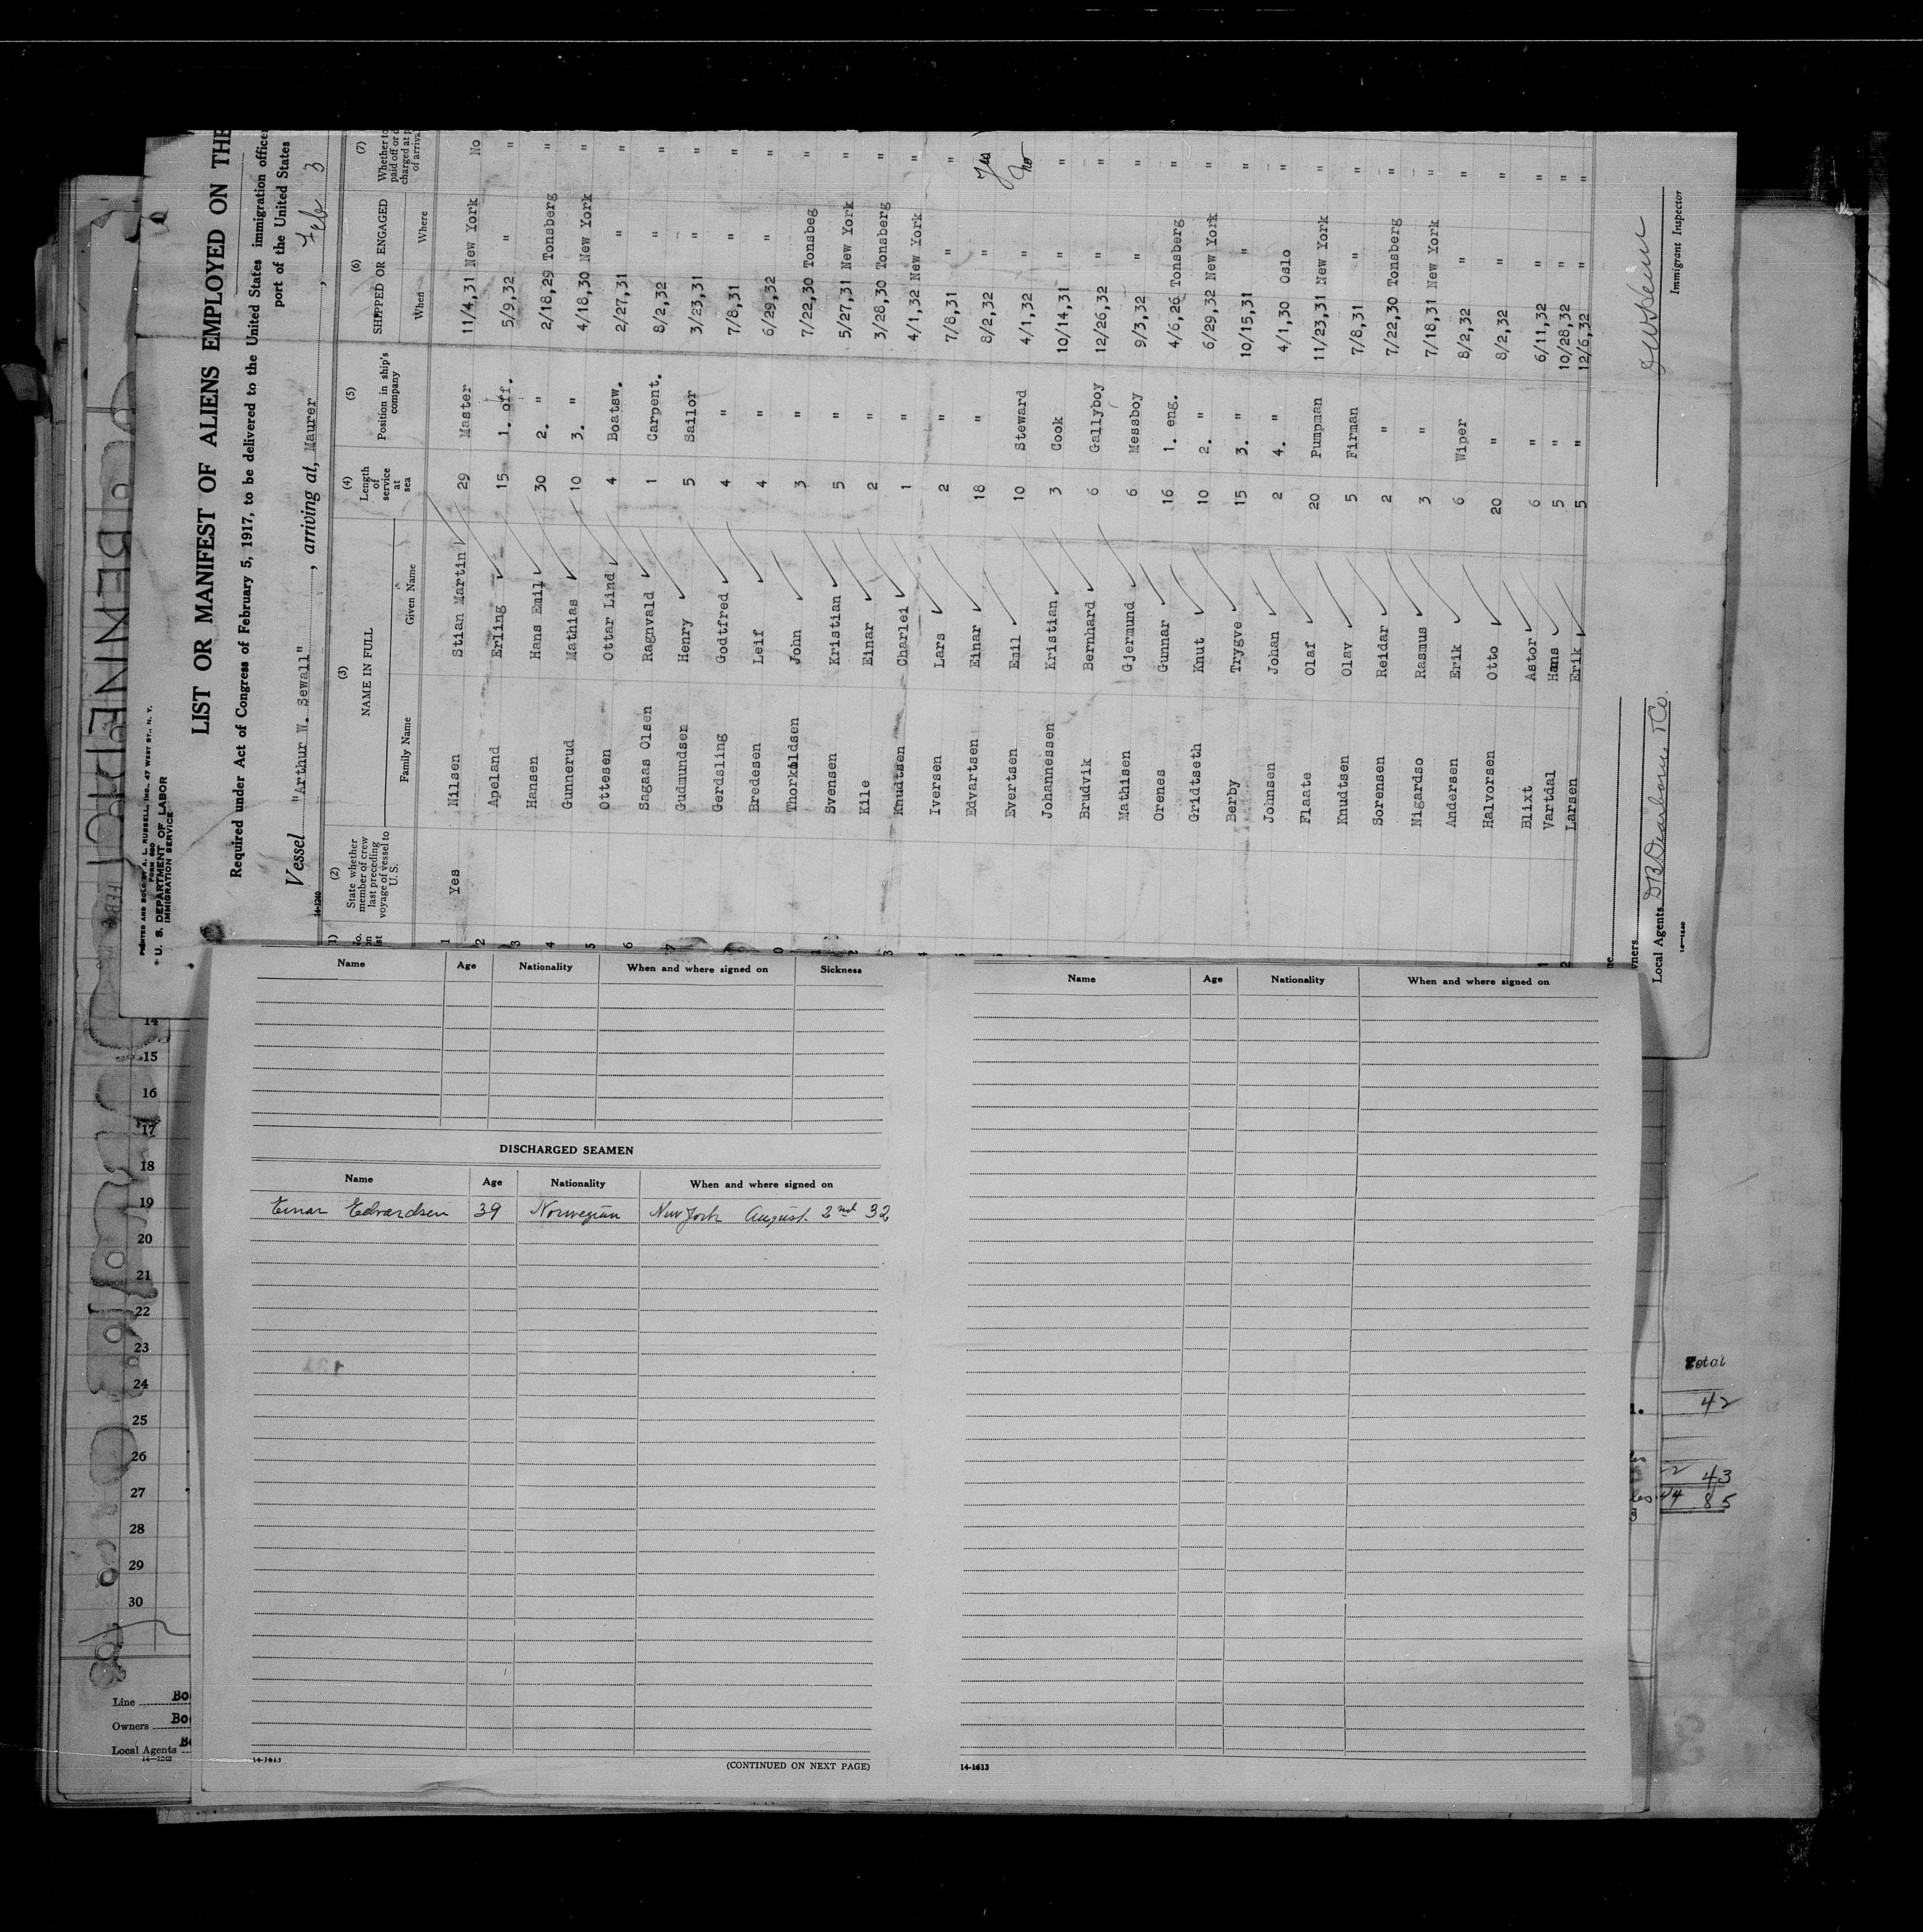 PRINTED AND SOLD BY A. L. RUSSELL, INC., 47 WEST ST., N. Y.
FORM 680
U. S. DEPARTMENT OF LABOR
IMMIGRATION SERVICE
LIST OR MANIFEST OF ALIENS EMPLOYED ON THE
Required under Act of Congress of February 5, 1917, to be delivered to the United States immigration office
port of the United States
Vessel "Arthur W. Sewall", arriving at, Maurer, Feb 3
14-1240
(2) (3) (4) (5) (6) (7)
State whether member of crew last preceding voyage of vessel to U. S. NAME IN FULL Length of service at sea Position in ship's company SHIPPED OR ENGAGED Whether to
Family Name Given Name When Where
1 Yes Nilsen Stian Martin 29 Master 11/4,31 New York No
2 Apeland Erling 15 1. off. 5/9,32 " "
3 Hansen Hans Emil 30 2. " 2/18,29 Tonsberg "
4 Gunnerud Mathias 10 3. " 4/18,30 New York "
5 Ottesen Ottar Lind 4 Boatsw. 2/27,31 " "
6 Sagaas Olsen Ragnvald 1 Carpent. 8/2,32 " "
7 Gudmundsen Henry 5 Sailor 3/23,31 " "
Gerdsling Godtfred 4 " 7/8,31 " "
Bredesen Leif 4 " 6/29,32 " "
Thorkoldsen John 3 " 7/22,30 Tonsbeg "
Svensen Kristian 5 " 5/27,31 New York "
Kile Einar 2 " 3/28,30 Tonsberg "
Knudtsen Charlei 1 " 4/1,32 New York "
Iversen Lars 2 " 7/8,31 " "
Edvartsen Einar 18 " 8/2,32 " Yes
Evertsen Emil 10 Steward 4/1,32 " No
Johannessen Kristian 3 Cook 10/14,31 " "
Brudvik Bernhard 6 Gallyboy 12/26,32 " "
Mathisen Gjermund 6 Messboy 9/3,32 " "
Orenes Gunnar 16 1. eng. 4/6,26 Tonsberg "
Gridtseth Knut 10 2. " 6/29,32 New York "
Berby Trygve 15 3. " 10/15,31 " "
Johnsen Johan 2 4. " 4/1,30 Oslo "
Flaate Olaf 20 Pumpman 11/23,31 New York "
Knudtsen Olav 5 Firman 7/8,31 " "
Sorensen Reidar 2 " 7/22,30 Tonsberg "
Nigardso Rasmus 3 " 7/18,31 New York "
Andersen Erik 6 Wiper 8/2,32 " "
Halvorsen Otto 20 " 8/2,32 " "
Blixt Astor 6 " 6/11,32 " "
Vartdal Hans 5 " 10/28,32 " "
Larsen Erik 5 " 12/6,32 " "
Local Agents D B Dearborn & Co.
Immigrant Inspector
14-1240
Name Age Nationality When and where signed on Sickness
DISCHARGED SEAMEN
Name Age Nationality When and where signed on
Einar Edvardsen 39 Norwegian New York August 2nd 32
14-1613
(CONTINUED ON NEXT PAGE)
Name Age Nationality When and where signed on
14-1613
14
15
16
17
18
19
20
21
22
23
24
25
26
27
28
29
30
Line Bo
Owners Bo
Local Agents Bo
14-1240
Total
42
43
44 85